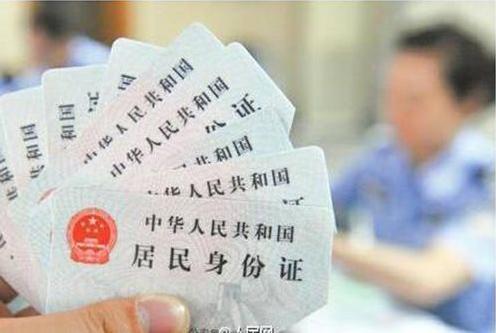 共和国
中华人民共和国
中华人民共和国
身份证
中华人民共和国
中华人民共和国
居民身份证
@人民网